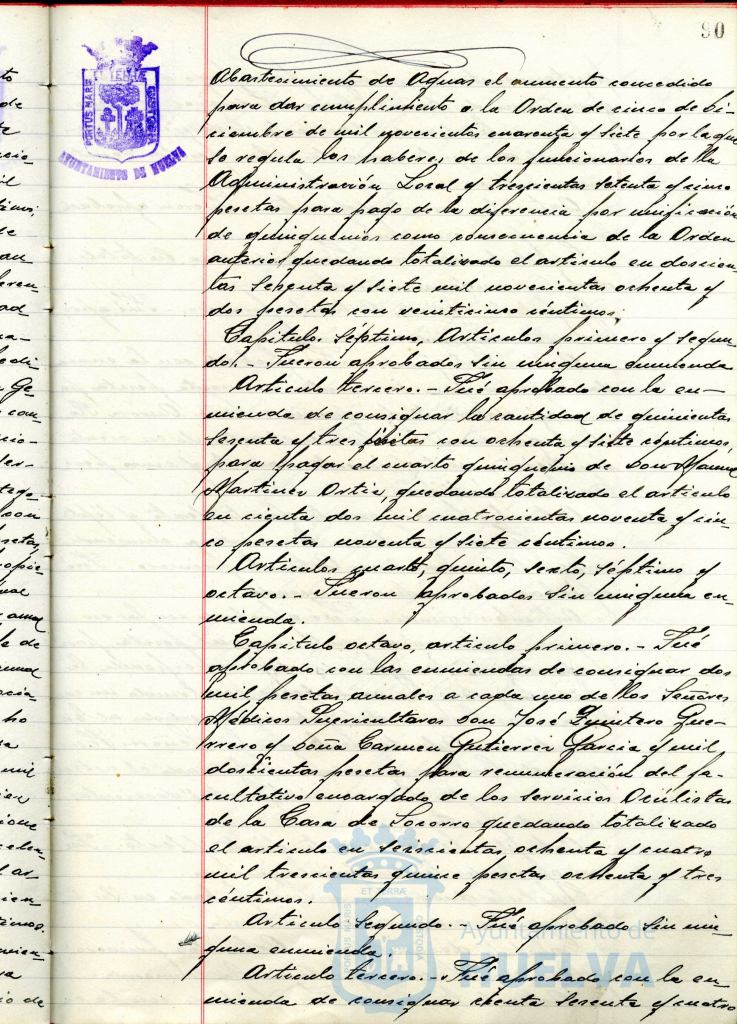 90
PORTUS MARIS ET TERRAE CUSTODIA
AYUNTAMIENTO DE HUELVA
Abastecimiento de Aguas el aumento concedido
para dar cumplimiento a la Orden de cinco de di-
ciembre de mil novecientos cuarenta y siete por la que
se regula los haberes de los funcionarios de la
Administración Local y trescientas setenta y cinco
pesetas para pago de la diferencia por unificación
de quinquenios como consecuencia de la Orden
anterior quedando totalizado el artículo en doscien-
tas sesenta y siete mil novecientas ochenta y
dos pesetas con veinticinco céntimos.
Capítulo. Séptimo, Artículos primero y segun-
do. - Fueron aprobados sin ninguna enmienda
Artículo tercero. - Fué aprobado con la en-
mienda de consignar la cantidad de quinientas
sesenta y tres pesetas con ochenta y siete céntimos,
para pagar el cuarto quinquenio de Don Manuel
Martínez Ortiz, quedando totalizado el artículo
en cienta dos mil cuatrocientas noventa y cin-
co pesetas noventa y siete céntimos.
Artículos cuarto, quinto, sexto, séptimo y
octavo. - Fueron aprobados sin ninguna en-
mienda.
Capítulo octavo, artículo primero. - Fué
aprobado con las enmiendas de consignar dos
mil pesetas anuales a cada uno de los Señores
Médicos Puericultores Don José Quintero Gue-
rrero y Doña Carmen Gutierrez García y mil
doscientas pesetas para remuneración del fa-
cultativo encargado de los servicios Oculistas
de la Casa de Socorro quedando totalizado
el artículo en seiscientas ochenta y cuatro
mil trescientas quince pesetas ochenta y tres
céntimos.
Artículo Segundo. - Fué aprobado sin nin-
guna enmienda.
Artículo tercero. - Fué aprobado con la en-
mienda de consignar cienta sesenta y cuatro
PORTUS MARIS ET TERRAE CUSTODIA
Ayuntamiento de
HUELVA